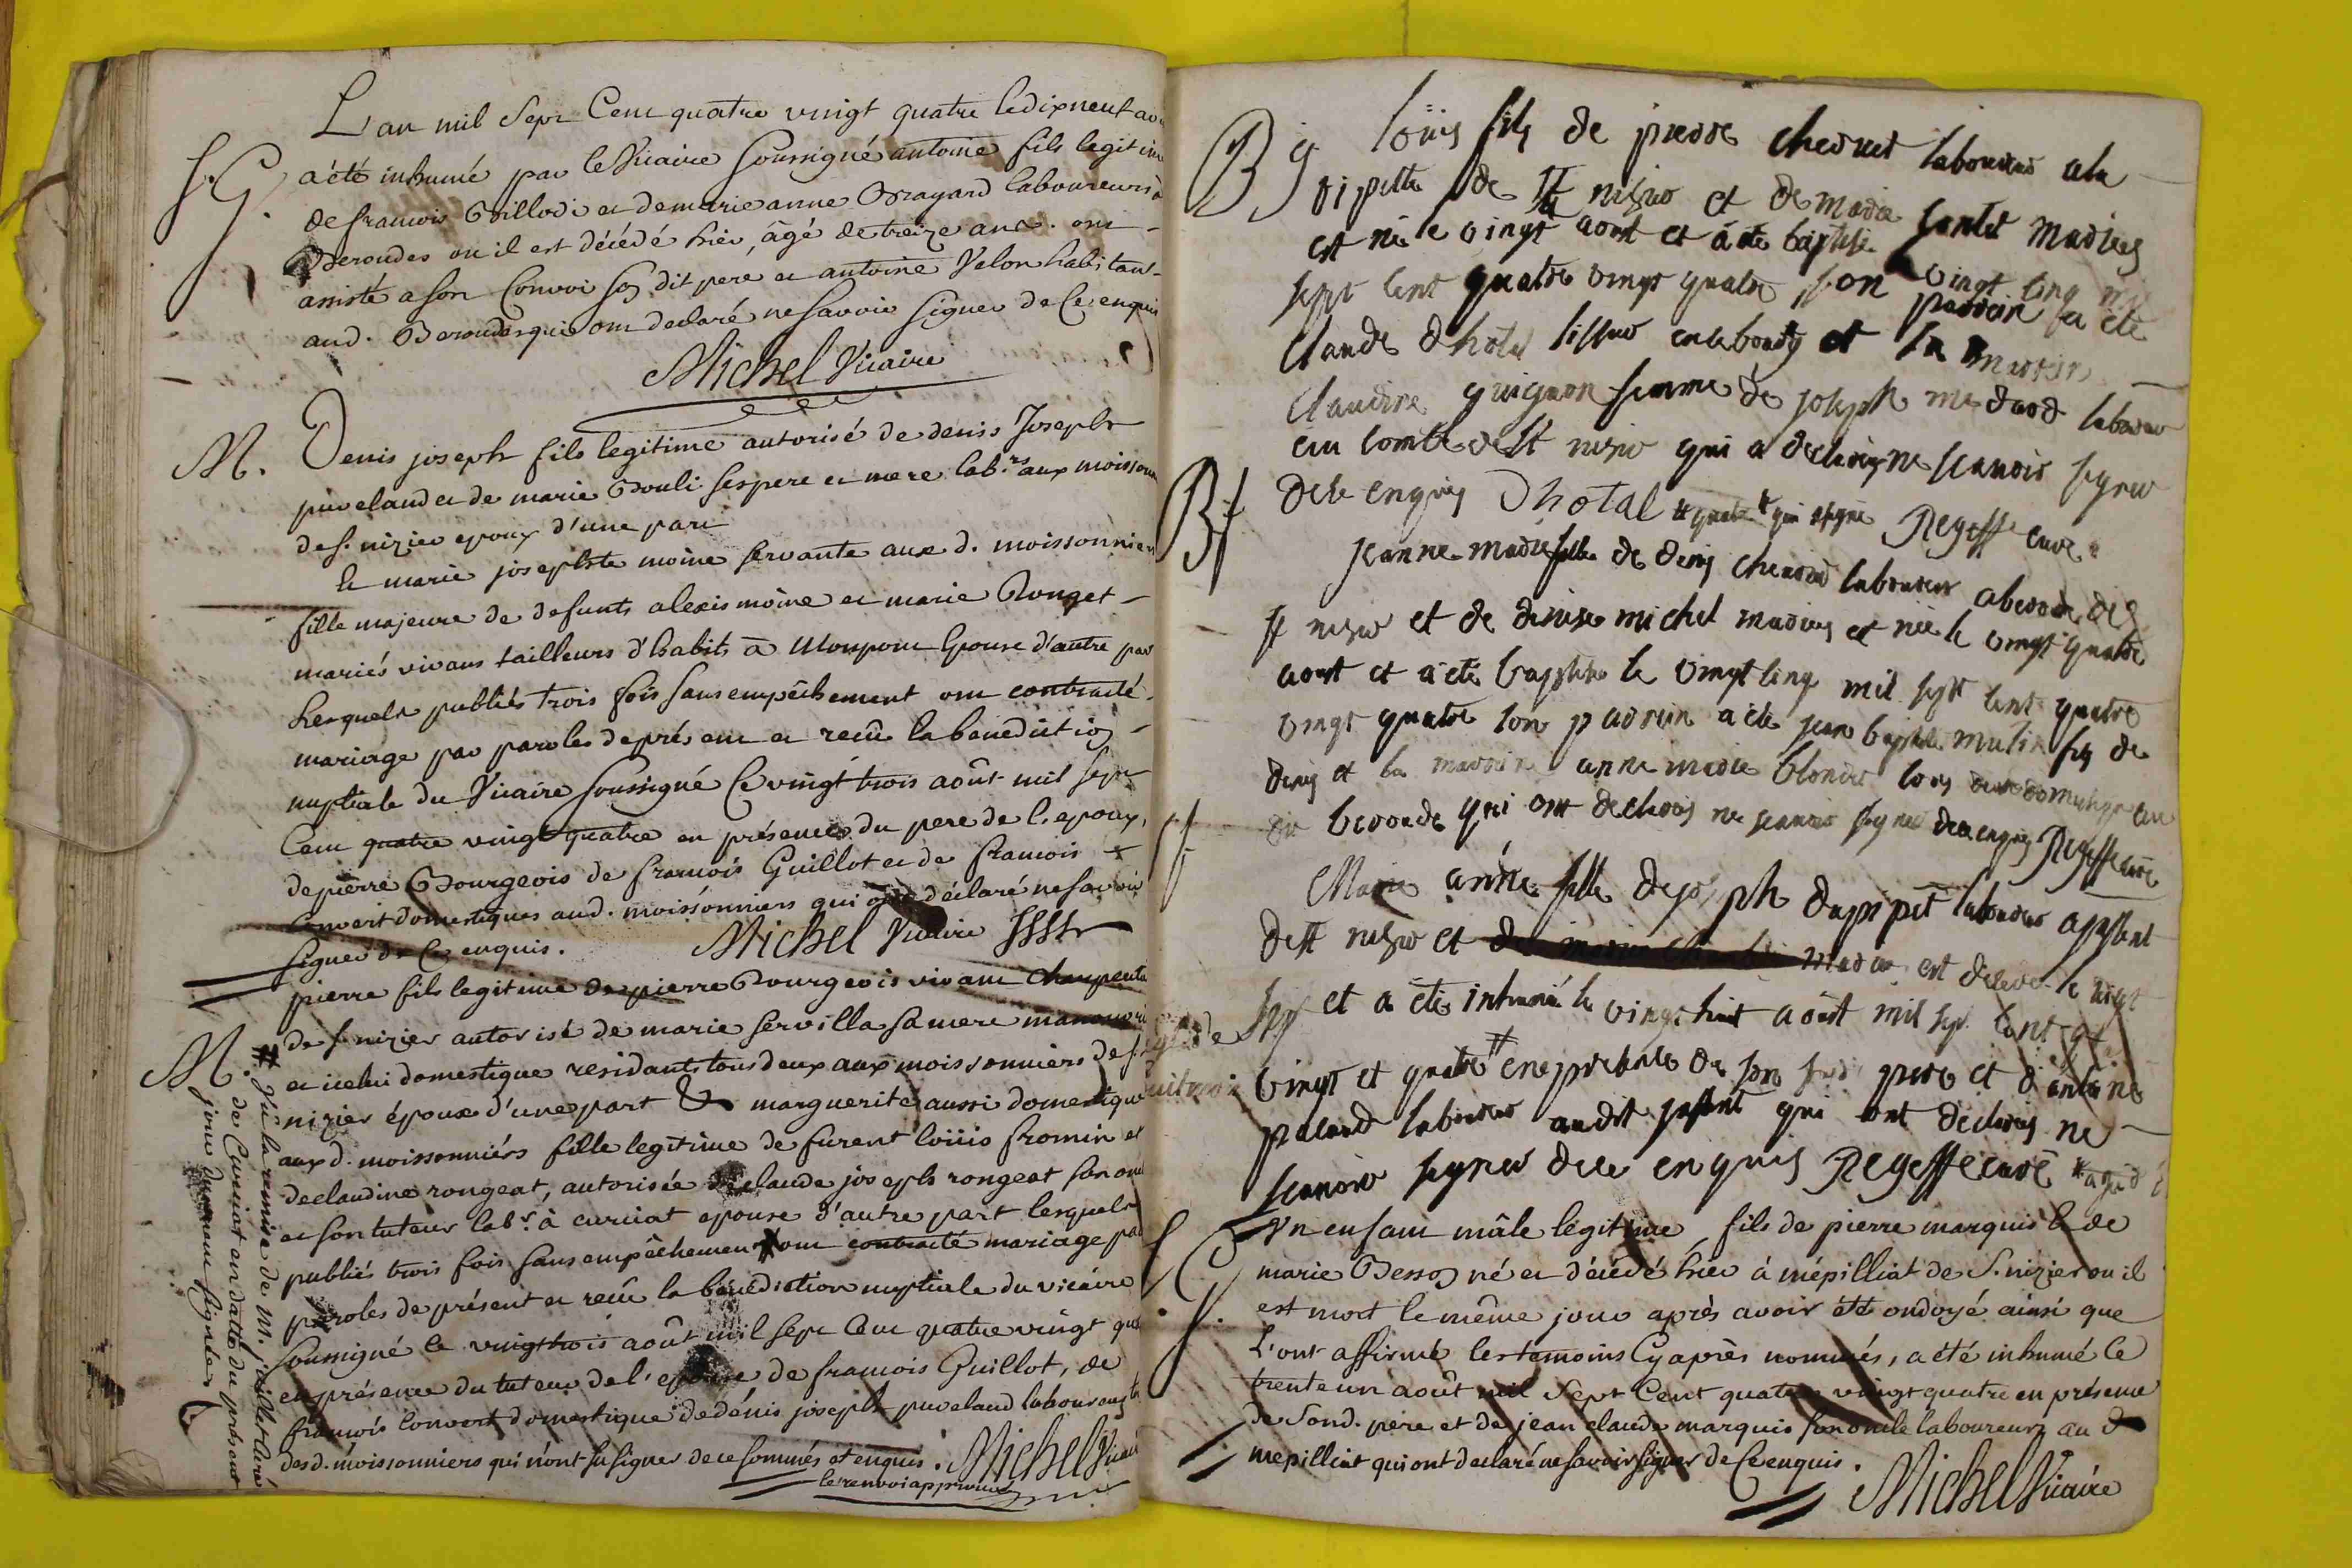 L'an mil Sept Cent quatre vingt quatre le dixneuf
S. G. a été inhumé par le Vicaire soussigné antoine fils legitime
de francois Guillodi et de marie anne Brayard laboureurs à
Beroudes ou il est décédé hier, âgé de treize ans. ont
assisté a son Convoi son dit pere et antoine Velon habitans
aud. Beroudes qui ont declaré ne savoir signer de Ce enquis
Michel Vicaire
M. Denis joseph fils legitime autorisé de denis Joseph
puveland et de marie Bouli ses pere et mere lab.rs aux moissonn
de s. nizier epoux d'une part
Et marie josephte moine servante aux d. moissonniers
fille majeure de defunts alexis moine et marie Rouget
mariés vivans tailleurs d'habits à Monpont Epouse d'autre part
Lesquels publiés trois fois sans empêchement ont contracté
mariage par paroles de présent et recû la benediction
nuptiale du Vicaire soussigné Ce vingt trois août mil sept
Cent quatre vingt quatre en présence du pere de l'epoux,
de pierre Bourgeois de francois Guillot et de francois
Convert domestiques aud. moissonniers qui ont déclaré ne savoir
signer de Ce enquis. Michel Vicaire
pierre fils legitime de pierre Bourgeois vivant charpentie
de s. nizier autorisé de marie servilla sa mere manouvri
M. et icelui domestique residants tous deux aux moissonniers de s.
nizier époux d'une part & marguerite aussi domestique
aux d. moissonniérs fille legitime de furent loüis fromin et
de claudine rongeat, autorisée de claude joseph rongeat son oncle
et son tuteur lab.r à curciat epouse d'autre part lesquels
publiés trois fois sans empêchement # ont contracté mariage par
paroles de présent et recû la bénédiction nuptiale du vicaire
soussigné le vingt trois août mil sept Cent quatre vingt qua
en présence du tuteur de l'epouse de francois Guillot, de
francois Convert domestique de dénis joseph puveland laboureur
des d. moissonniers qui n'ont su signer de ce sommés et enquis. Michel Vicaire
le renvoi approuvé
# vu la remise de M. Curé
de Curciat en datte du présent
jour duement signée
B g Loüis fils de pierre chevret laboureur a la
vipette de st nizier et de marie mariees
est né le vingt aoust et a été baptisé vingt cinq mil
sept cent quatre vingt quatre son parrein a eté
Claude dhotel tissur et la marrein
Claudine guignon femme de joseph laboureur
au Comte de st nizier qui a declaré ne scavoir signer
de ce enquis Dhotal qui signé Regeffe curé
B f Jeanne-marie fille de denis chevret laboureur a beroudes de
st nizier et de denise michel mariees est née le vingt quatre
aoust et a été baptisée le vingt cinq mil sept cent quatre
vingt quatre son parrein a été jean baptiste mutin fils de
denis et la marreine anne marie blondet tous domestiques au
dit beroudes qui ont declarés ne scavoir signer de ce enquis Regeffe curé
Marie anne fille de joseph dupipet laboureur
de st nizier et est decedée le vingt
sept et a été inhumé le vingt huit août mil sept cent q
vingt et quatre # en presence de son pere et d'antoine
puvland laboureur audit qui ont declarés ne
scavoir signer de ce enquis Regeffe curé # agé d
S. G. Un enfant mâle légitime, fils de pierre marquis & de
marie Besson né et décédé hier à mépilliat de S. nizier ou il
est mort le même jour après avoir été ondoyé ainsi que
L'ont affirmé les témoins Cy après nommés, a été inhumé le
trente un août mil Sept Cent quatre vingt quatre en présence
de son d. père et de jean claude marquis son oncle laboureurs au d
mepilliat qui ont declaré ne savoir signer de Ce enquis.
Michel Vicaire